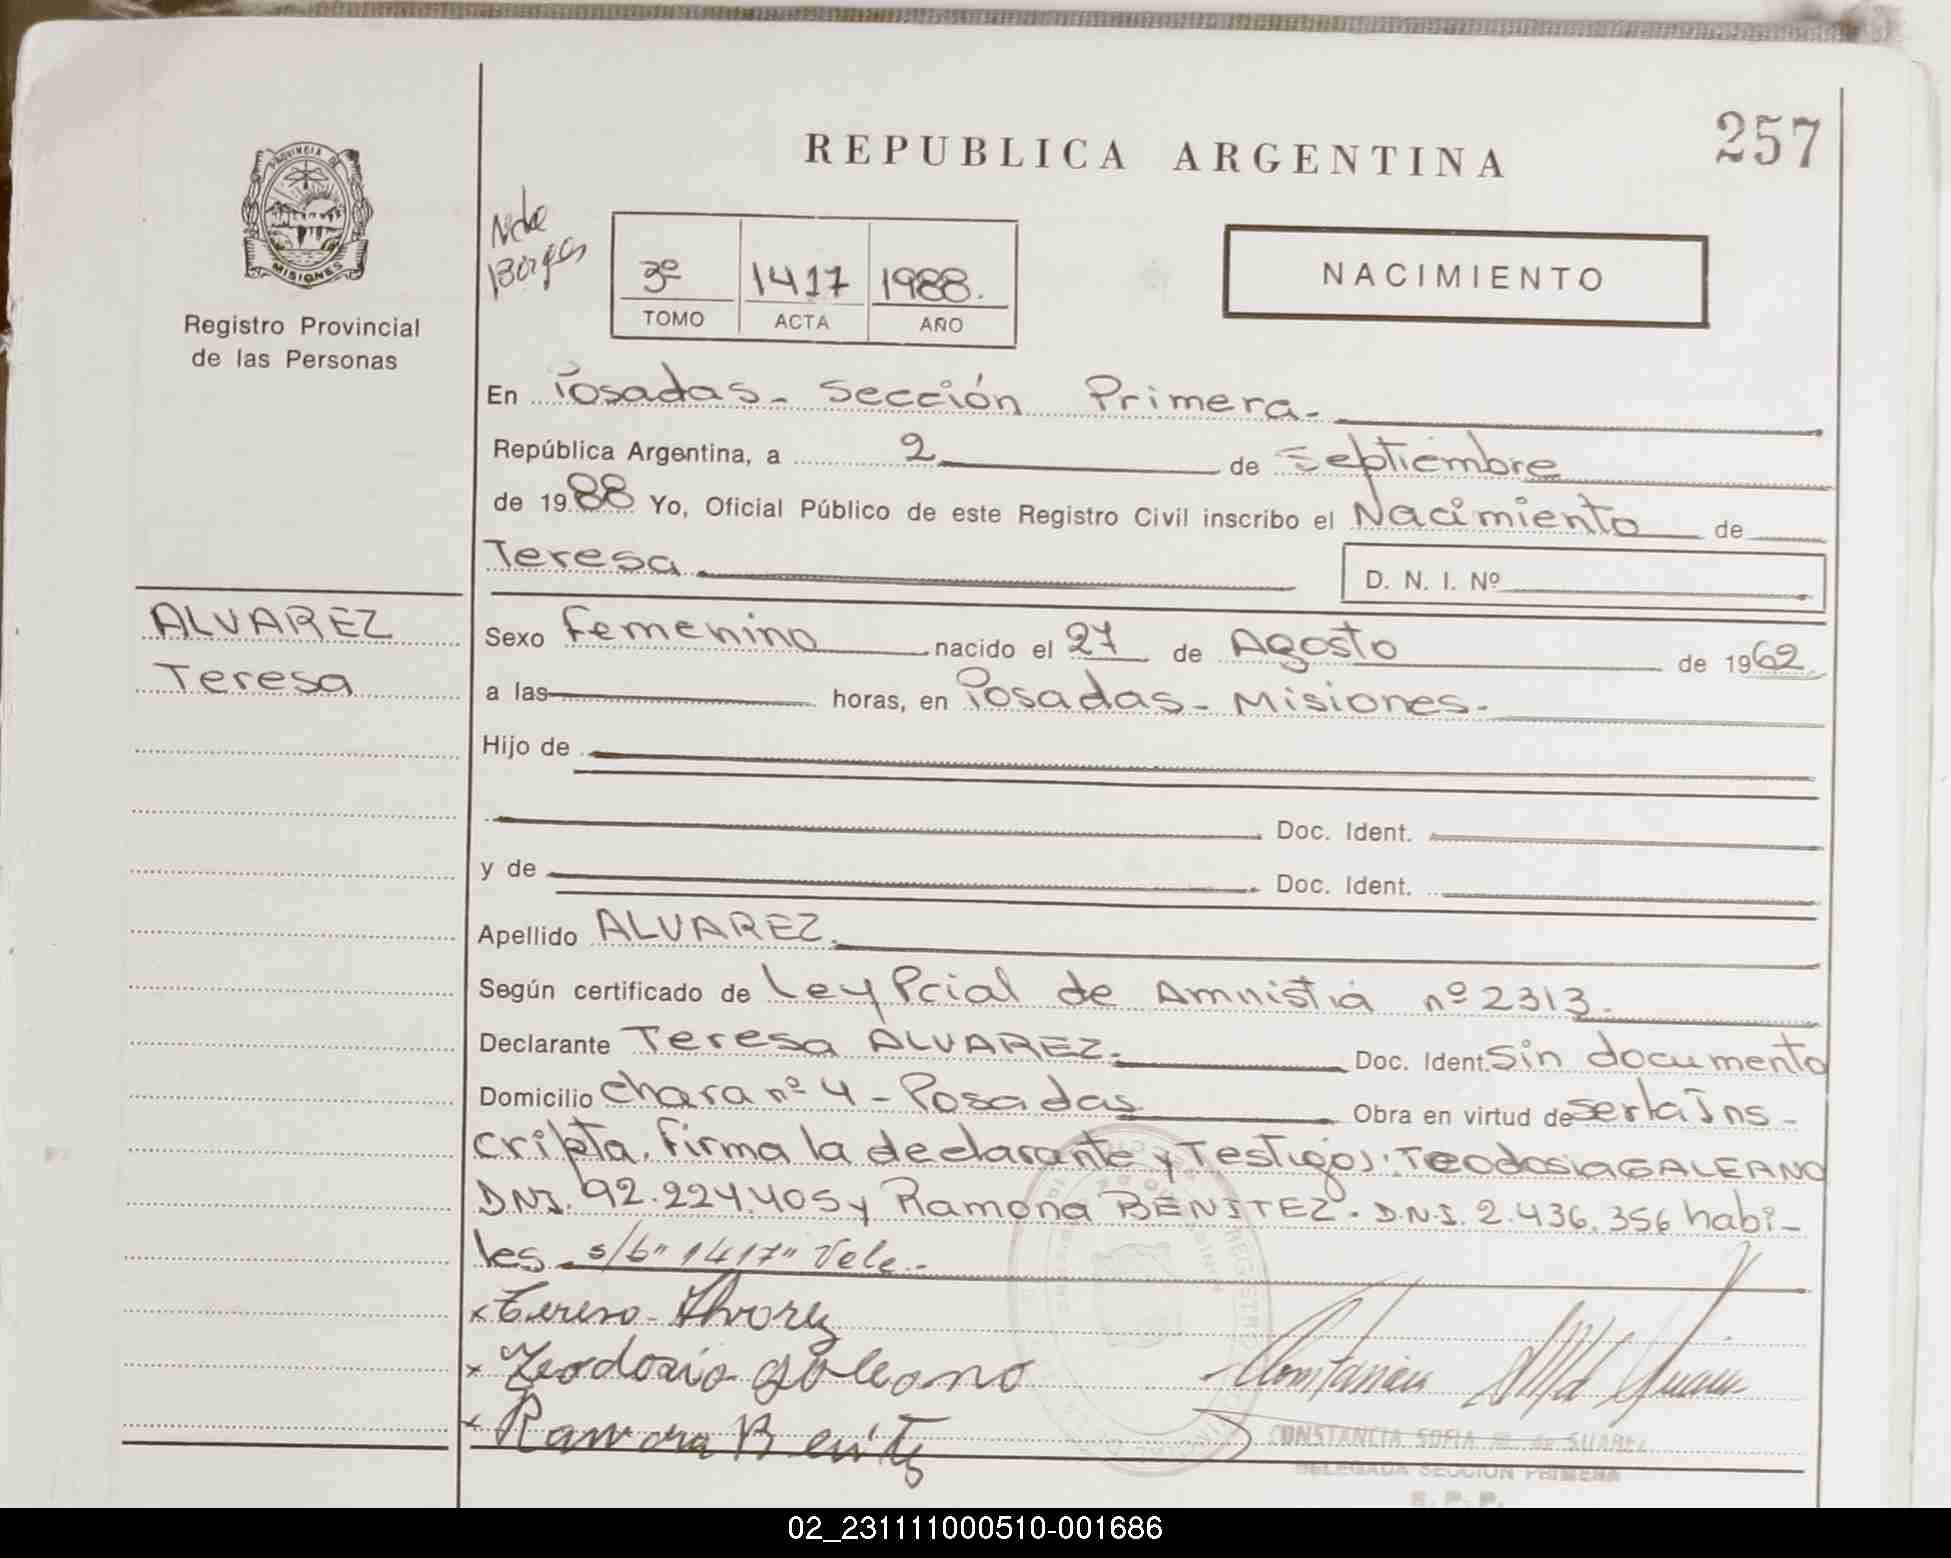 257
REPUBLICA ARGENTINA
PROVINCIA DE
MISIONES
Registro Provincial
de las Personas
Borges
3º 1417 1988.
TOMO ACTA AÑO
NACIMIENTO
En Posadas - Sección Primera.
República Argentina, a 2 de Septiembre
de 1988 Yo, Oficial Público de este Registro Civil inscribo el Nacimiento de
Teresa D. N. I. Nº
ALVAREZ
Teresa
Sexo Femenino nacido el 27 de Agosto de 1962
a las horas, en Posadas - Misiones.
Hijo de
Doc. Ident.
y de Doc. Ident.
Apellido ALVAREZ.
Según certificado de Ley Pcial de Amnistia nº 2313.
Declarante Teresa ALVAREZ. Doc. Ident. Sin documento
Domicilio Chara nº 4 - Posadas Obra en virtud de ser la Ins-
cripta. Firma la declarante y Testigos: Teodosia GALEANO
DNI. 92.224.405 y Ramona BENITEZ. D.N.I. 2.436.356 habi-
les. s/b "1417" Vale.-
x Teresa Alvarez
x Teodosia galeano
x Ramona Benitez
CONSTANCIA SOFIA M. de SUAREZ
DELEGADA SECCION PRIMERA
R. P. P.
02_231111000510-001686